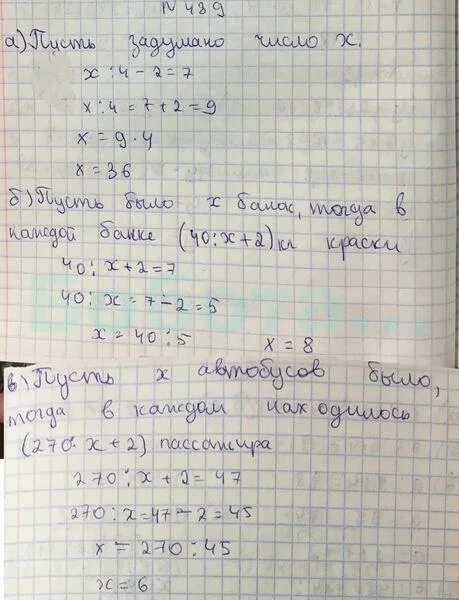 № 489
а) Пусть задумано число х.
х : 4 - 2 = 7
х : 4 = 7 + 2 = 9
х = 9 · 4
х = 36
б) Пусть было х банок, тогда в
каждой банке (40 : х + 2) кг краски
40 : х + 2 = 7
40 : х = 7 - 2 = 5
х = 40 : 5 х = 8
в) Пусть х автобусов было,
тогда в каждом находилось
(270 : х + 2) пассажира
270 : х + 2 = 47
270 : х = 47 - 2 = 45
х = 270 : 45
х = 6